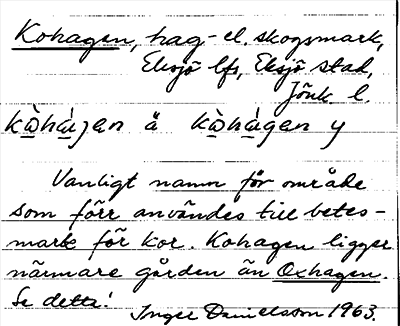 Kohagen, hag- el. skogsmark,
Eksjö lfs, Eksjö stad,
Jönk l.
kὼhὰjen å kὼhὰgen y
Vanligt namn för område
som förr användes till betes-
mark för kor. Kohagen ligger
närmare gården än Oxhagen.
Se detta!
Inger Danielsson 1963.